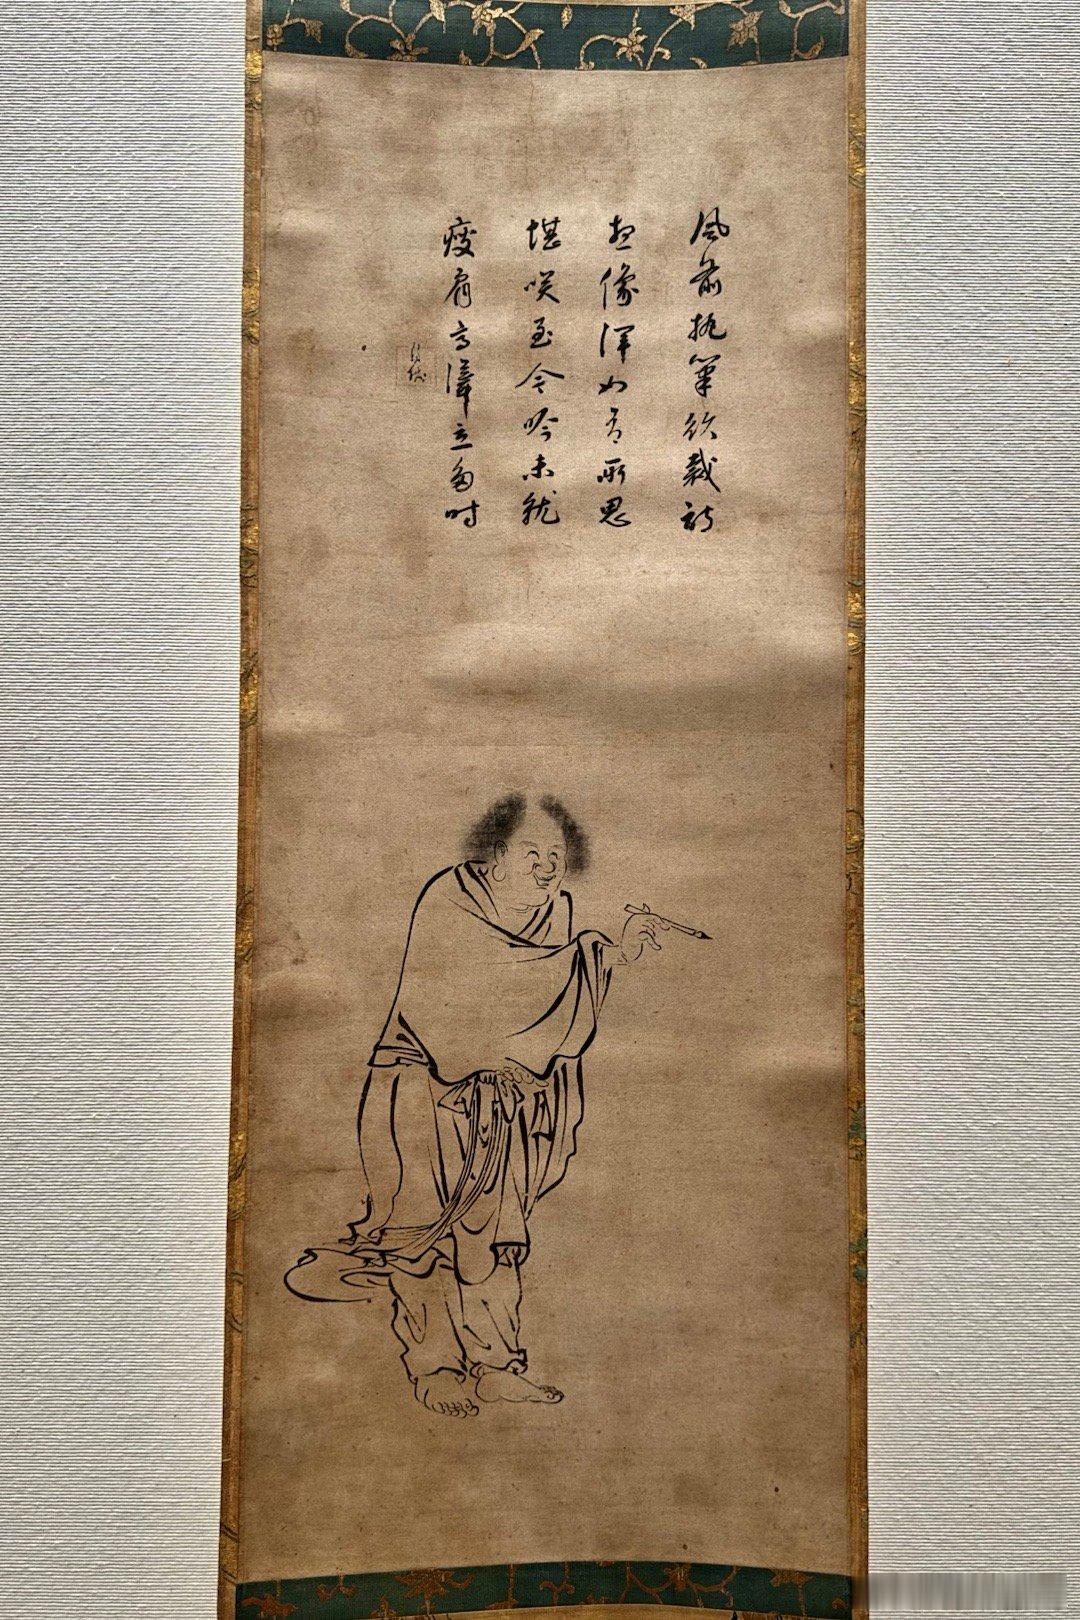 風前執筆欲裁詩
想像渾如有所思
堪咲至今吟未就
瘦肩高聳立多時